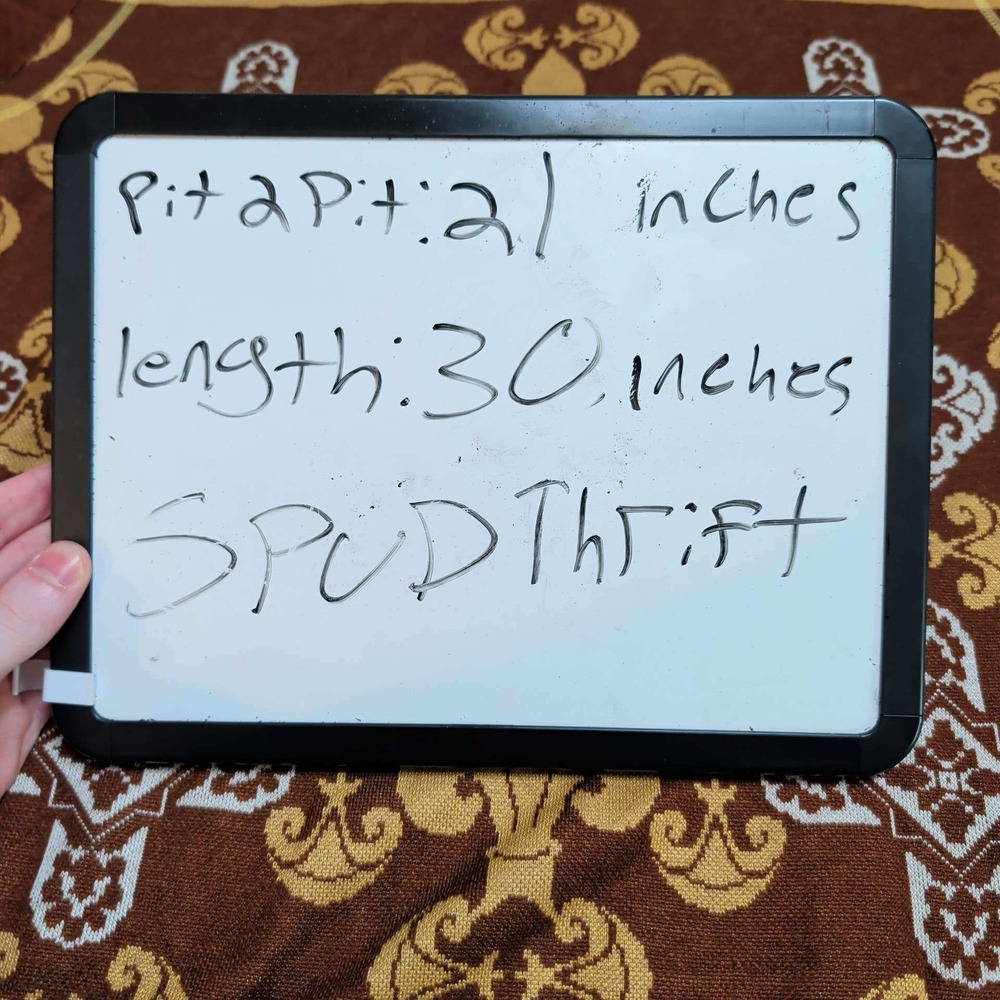 Pit 2 Pit: 21 inches
length: 30 inches
SPUDThrift